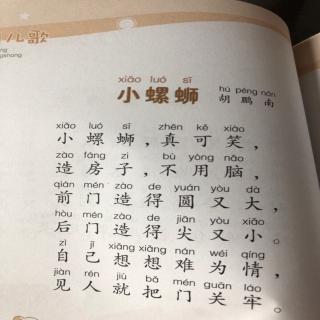 儿歌
xiǎo luó sī
小螺蛳
hú péng nán
胡鹏南
xiǎo luó sī zhēn kě xiào
小螺蛳，真可笑，
zào fáng zi bù yòng nǎo
造房子，不用脑，
qián mén zào de yuán yòu dà
前门造得圆又大，
hòu mén zào de jiān yòu xiǎo
后门造得尖又小。
zì jǐ xiǎng xiǎng nán wéi qíng
自己想想难为情，
jiàn rén jiù bǎ mén guān láo
见人就把门关牢。